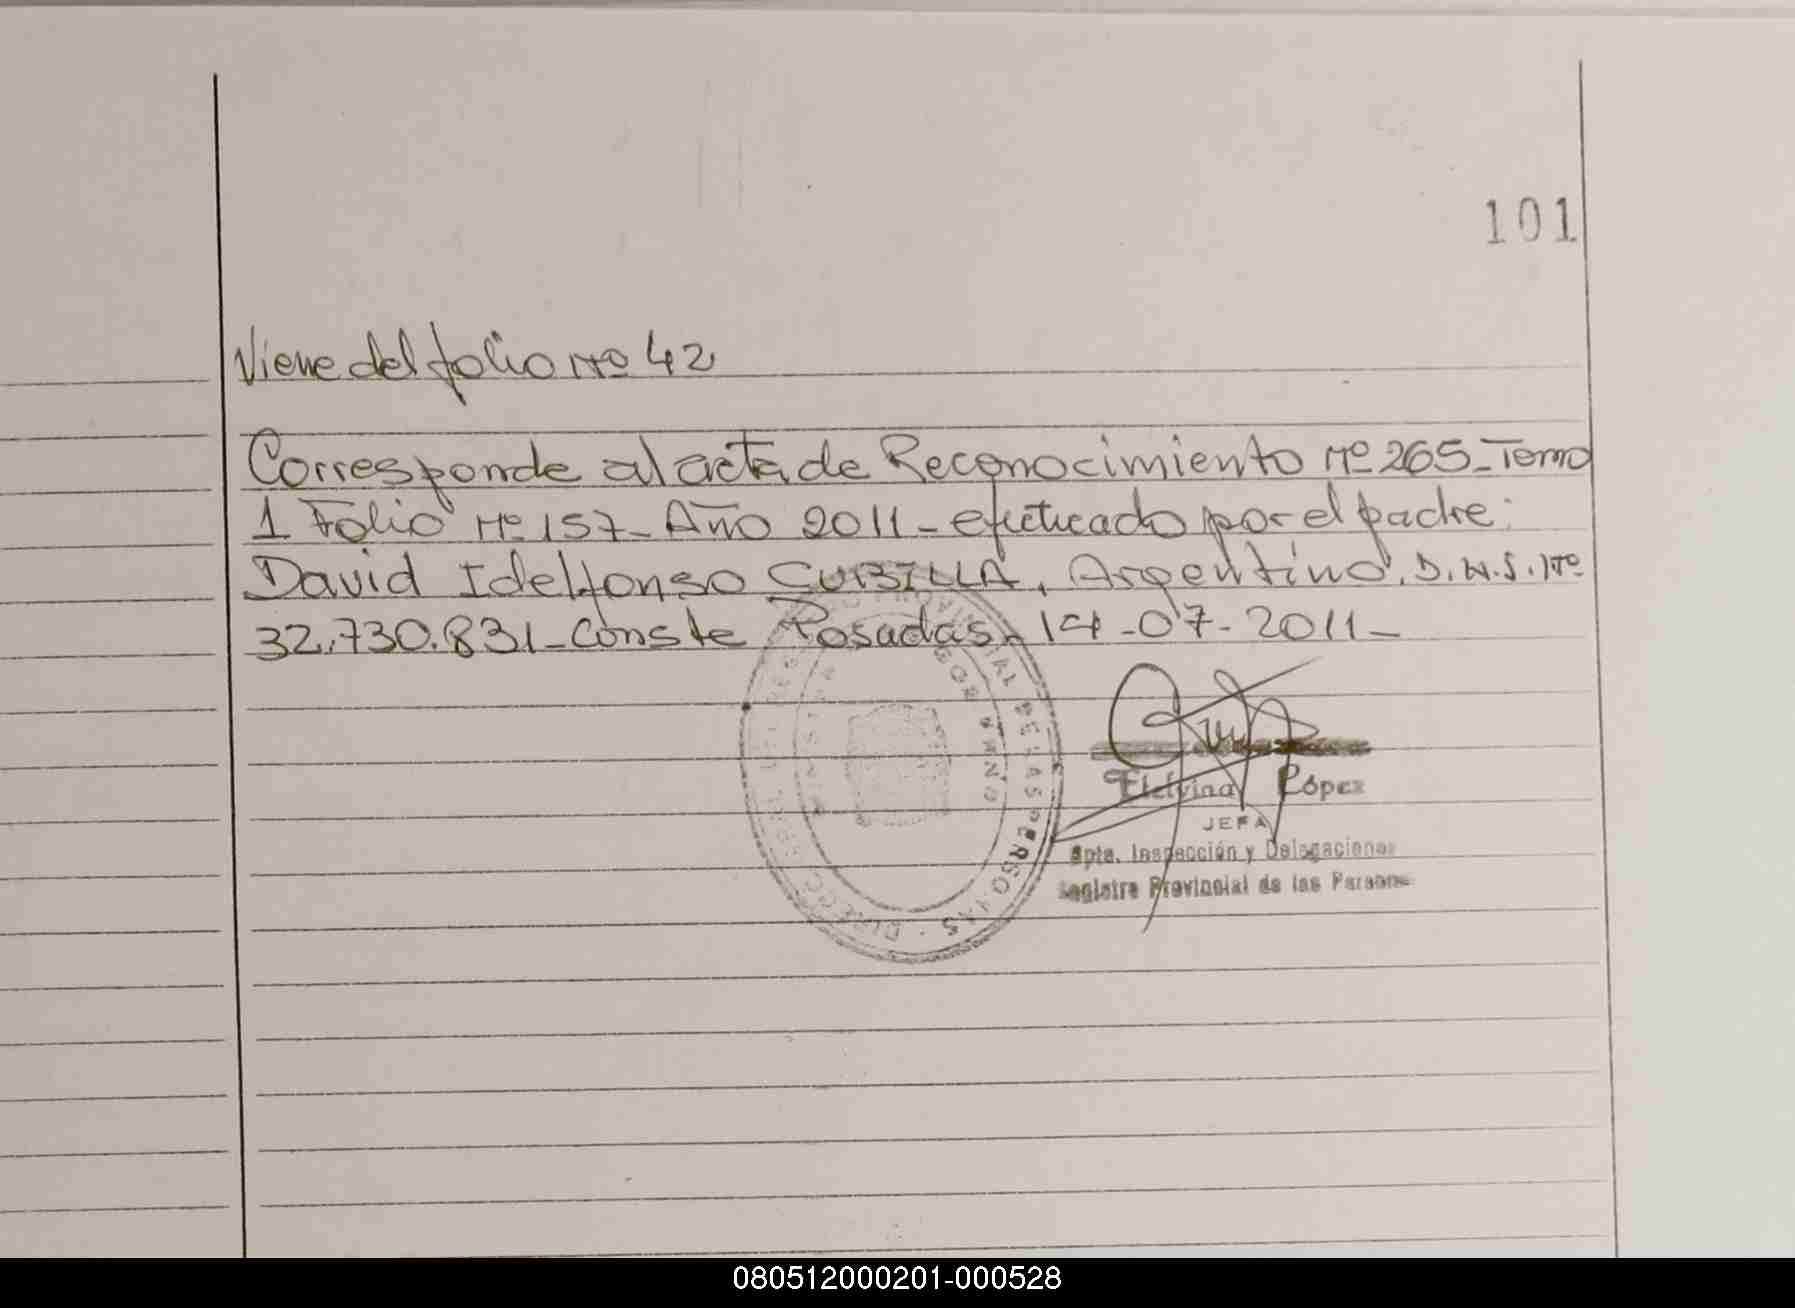 101
Viene del folio Nº 42
Corresponde al acta de Reconocimiento Nº 265_Tomo
1 Folio Nº 157_Año 2011_efectuado por el padre:
David Idelfonso CUBILLA, Argentino. D.N.I. Nº
32.730.831_Conste Posadas_14-07-2011_
López
JEFA
Dpto. Inspección y Delegaciones
Registro Provincial de las Personas
080512000201-000528